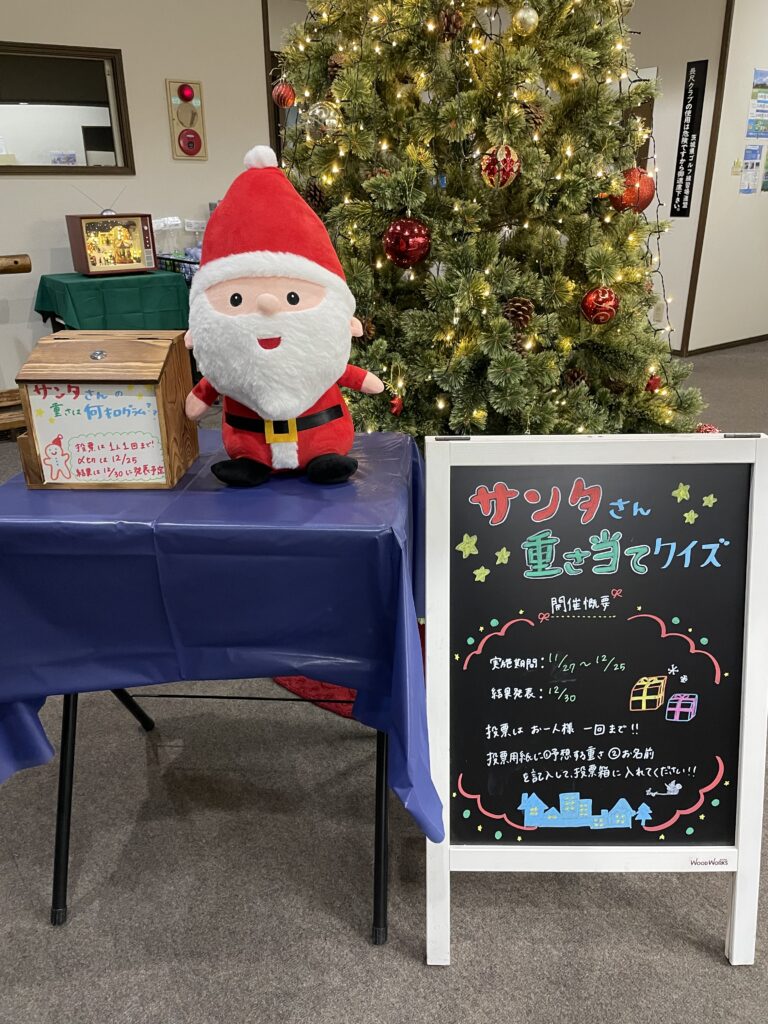 長尺クラブの使用は危険ですから御遠慮下さい。
茨城県ゴルフ練習場連盟
サンタさんの
重さは何キログラム?
投票は1人1回まで!
〆切は12/25
結果は12/30に発表予定
サンタさん
重さ当てクイズ
開催概要
実施期間:11/27~12/25
結果発表:12/30
投票はお一人様 一回まで!!
投票用紙に①予想する重さ②お名前
を記入して、投票箱に入れてください!!
WOODWORKS